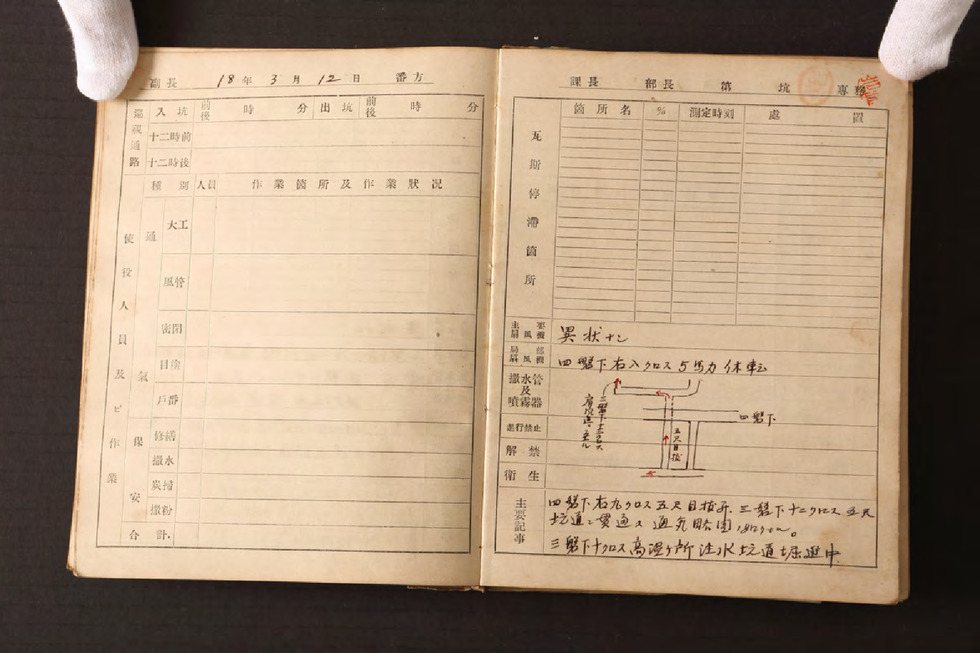 副長 18年 3月 12日 番方
巡視通路 入坑 前後 時 分 出坑 前後 時 分
十二時前
十二時後
種別 人員 作業箇所及作業狀況
使役人員及ビ作業
通氣
大工
風管
密閉
目塗
戶番
保安
修繕
撒水
炭掃
撒粉
合計
課長 部長 第 坑 專務
瓦斯停滯箇所
箇所名 % 測定時刻 處置
主要扇風機 異状ナシ
局部扇風機 四盤下右入クロス5馬力休転
撒水管及噴霧器
進行禁止
解禁
衛生
四盤下
五尺目抜
主要記事
四盤下右九クロス五尺目抜昇、三盤下十二クロス五尺
坑道ニ貫通ス通気略図
三盤下十クロス高湿ヶ所注水坑道堀進中